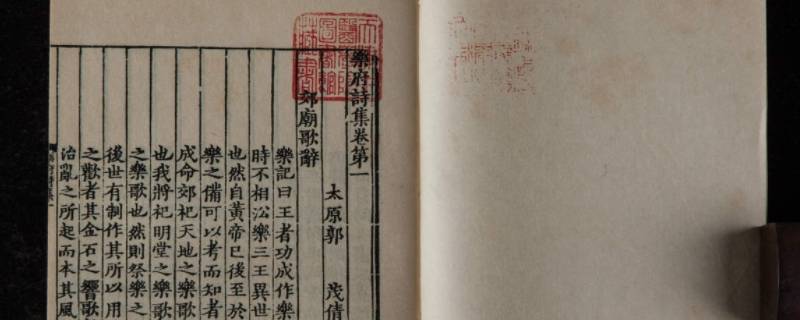 樂府詩集卷第一
太原郭 茂倩
郊廟歌辭
樂記曰王者功成作樂
時不相沿樂三王異世
也然自黃帝已後至於
樂之備可以考而知者
成命郊祀天地之樂歌
也我將祀明堂之樂歌
之樂歌也然則祭樂之
後世有制作其所以用
之歡者其金石之響歌
治亂之所起而本其風